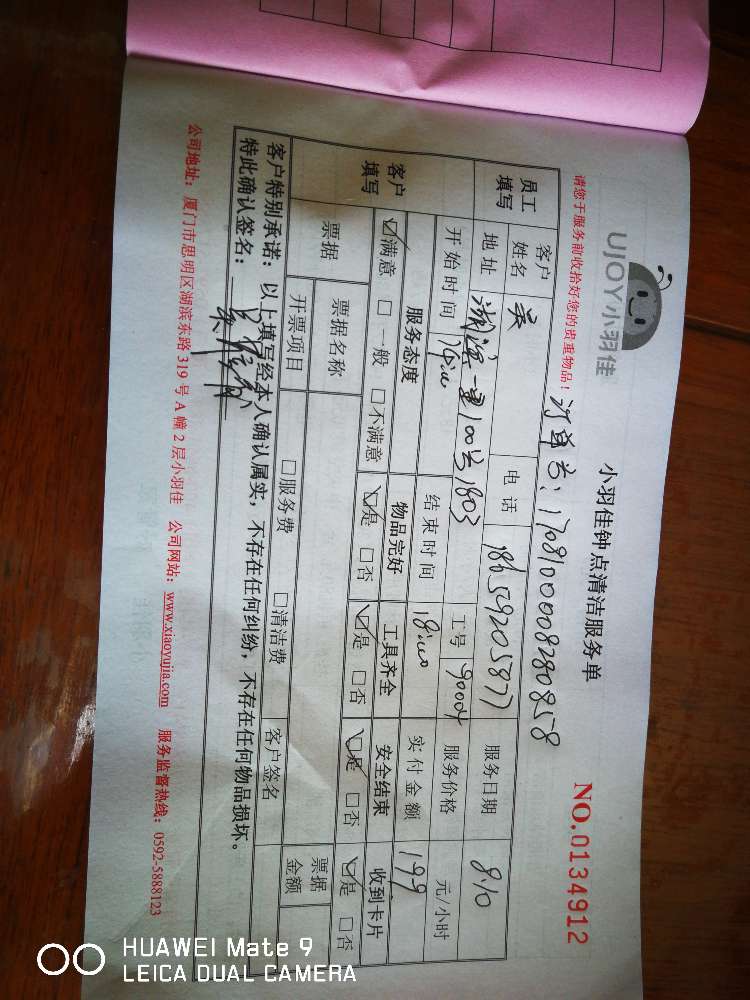 UJOY小羽佳
小羽佳钟点清洁服务单
NO.0134912
请您于服务前收拾好您的贵重物品!
订单号:1708100008280858
员工填写 客户姓名 吴 电话 18659205877 服务日期 8.10
地址 湖滨里100号1803 工号 90004 服务价格 元/小时
客户填写 开始时间 14:00 结束时间 18:00 实付金额 199
服务态度 物品完好 工具齐全 安全结束 收到卡片
☑满意 □一般 □不满意 ☑是 □否 ☑是 □否 ☑是 □否 ☑是 □否
票据 票据名称 票据金额
开票项目 □服务费 □清洁费 客户签名
客户特别承诺:以上填写经本人确认属实,不存在任何纠纷,不存在任何物品损坏。
特此确认签名:
公司地址:厦门市思明区湖滨东路319号A幢2层小羽佳 公司网站:www.xiaoyujia.com 服务监督热线:0592-5888123
HUAWEI Mate 9
LEICA DUAL CAMERA